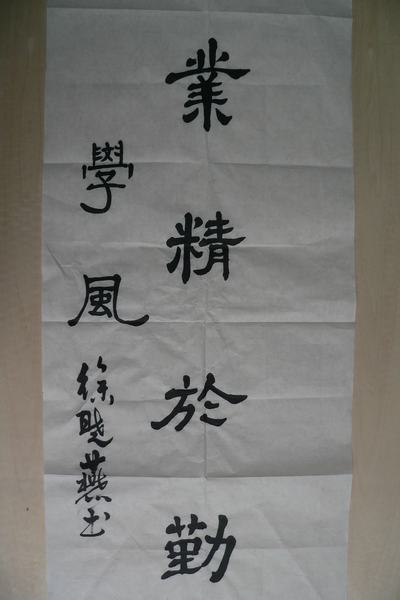 業精於勤
學風
徐曉燕书